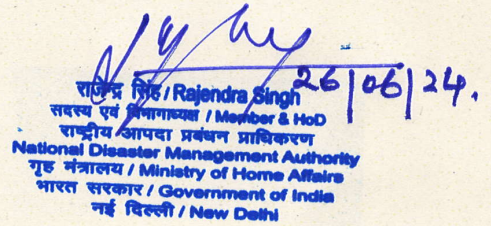 26/06/24.
राजेन्द्र सिंह / Rajendra Singh
सदस्य एवं विभागाध्यक्ष / Member & HoD
राष्ट्रीय आपदा प्रबंधन प्राधिकरण
National Disaster Management Authority
गृह मंत्रालय / Ministry of Home Affairs
भारत सरकार / Government of India
नई दिल्ली / New Delhi